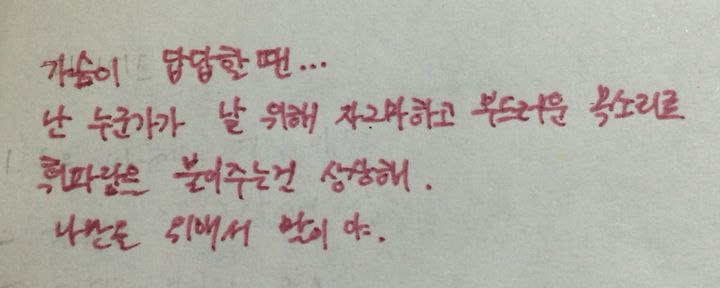 가슴이 답답할 땐...
난 누군가가 날 위해 자그마하고 부드러운 목소리로
휘파람을 불어주는걸 상상해.
나만을 위해서 말이야.